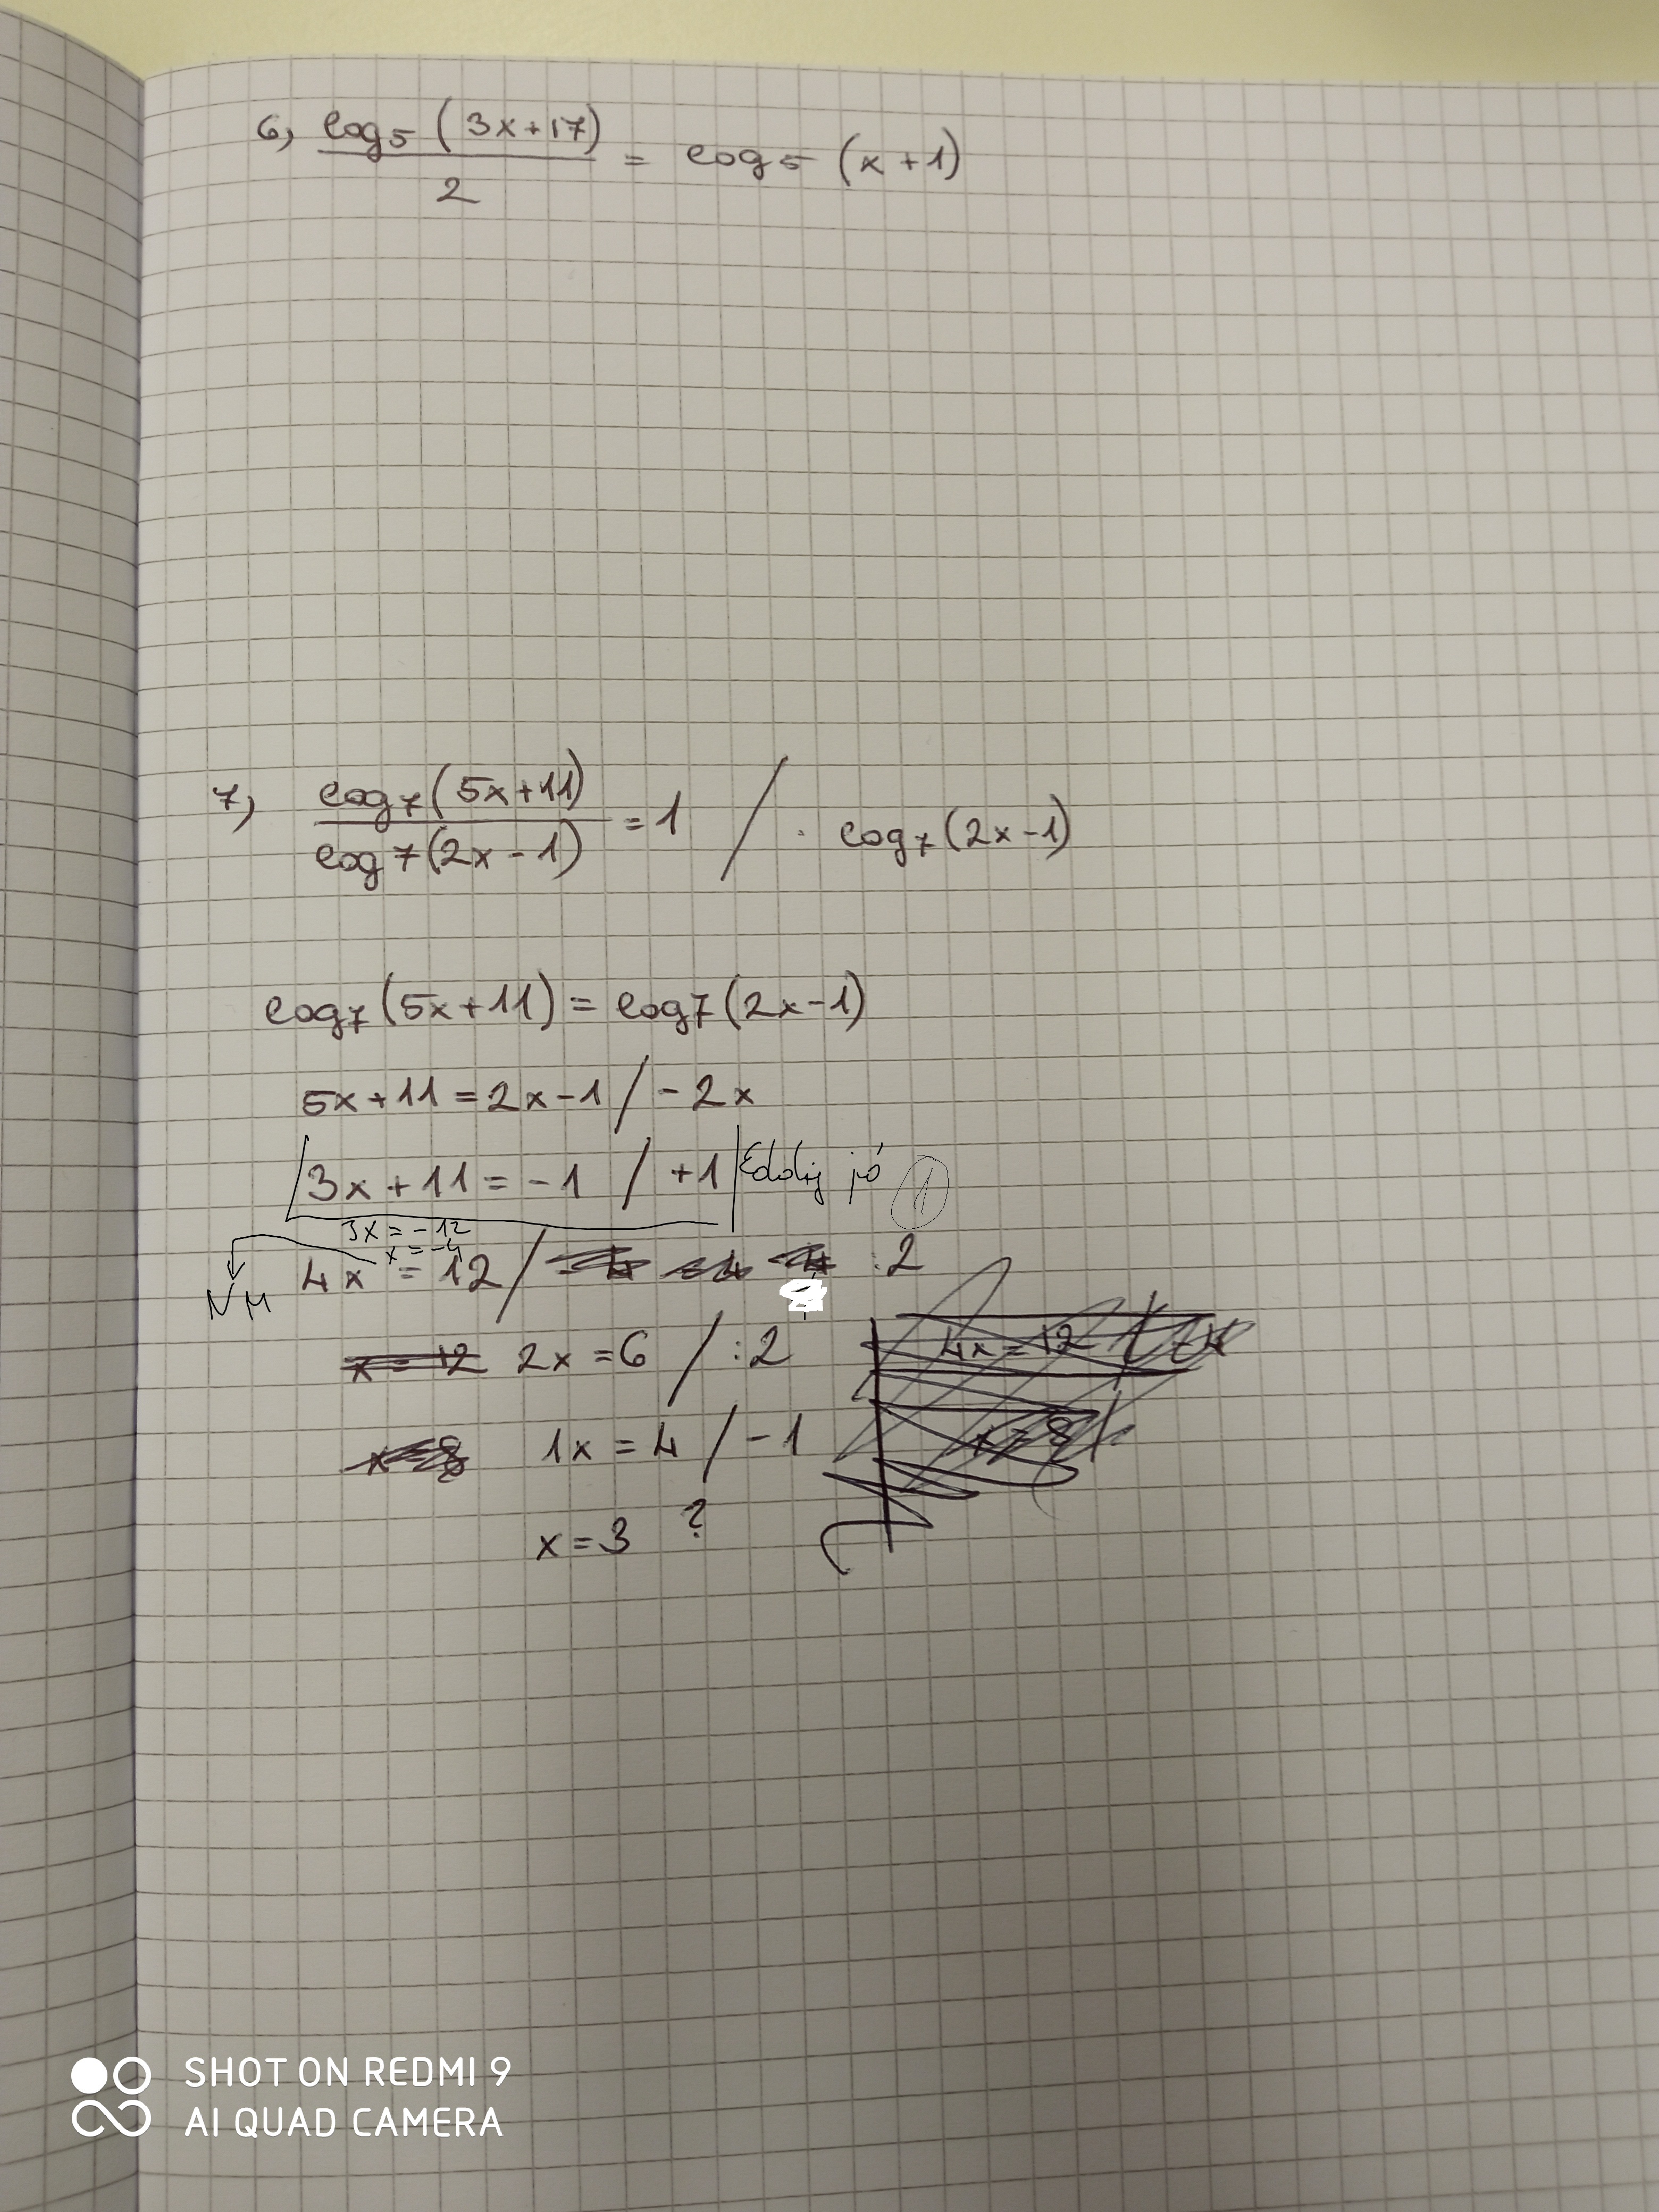 6, log₅ (3x+17)
2
= log₅ (x+1)
7, log₇ (5x+11)
log₇ (2x-1)
=1 / · log₇ (2x-1)
log₇ (5x+11) = log₇ (2x-1)
5x+11 = 2x-1 / -2x
3x+11 = -1 / +1 Eddig jó 1
3x = -12
x = -4
NM 4x = 12 / :2
x = 12 2x = 6 / :2 4x = 12
x=8 1x = 4 / -1 x=8
x = 3 ?
SHOT ON REDMI 9
AI QUAD CAMERA